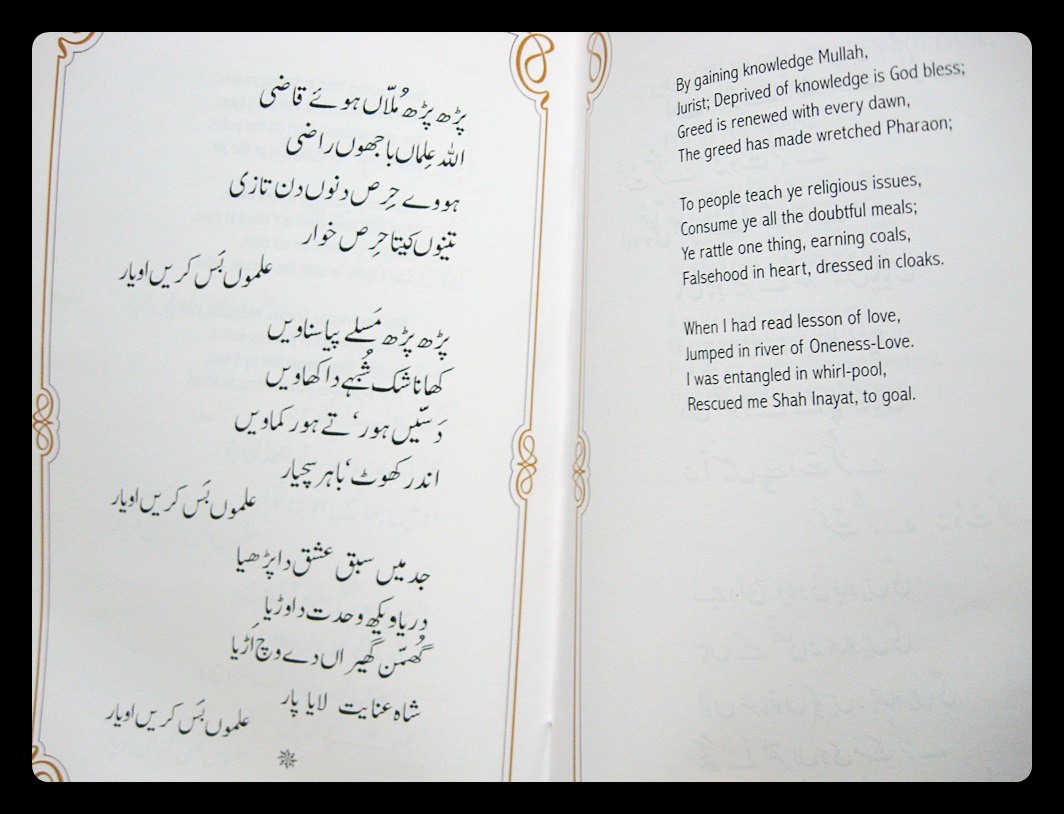 پڑھ پڑھ مُلّاں ہوئے قاضی
اللہ عِلماں باجھوں راضی
ہووے حِرص دنوں دن تازی
تینوں کیتا حِرص خوار
علموں بَس کریں اویار
پڑھ پڑھ مَسلے پیا سناویں
کھانا شک شُبہے دا کھاویں
دَسّیں ہور، تے ہور کماویں
اندر کھوٹ، باہر سچیار
علموں بَس کریں اویار
جد میں سبق عشق دا پڑھیا
دریا ویکھ وحدت دا وڑیا
گھُمّن گھیراں دے وچ اَڑیا
شاہ عنایت لایا پار
علموں بَس کریں اویار
By gaining knowledge Mullah,
Jurist; Deprived of knowledge is God bless;
Greed is renewed with every dawn,
The greed has made wretched Pharaon;
To people teach ye religious issues,
Consume ye all the doubtful meals;
Ye rattle one thing, earning coals,
Falsehood in heart, dressed in cloaks.
When I had read lesson of love,
Jumped in river of Oneness-Love.
I was entangled in whirl-pool,
Rescued me Shah Inayat, to goal.